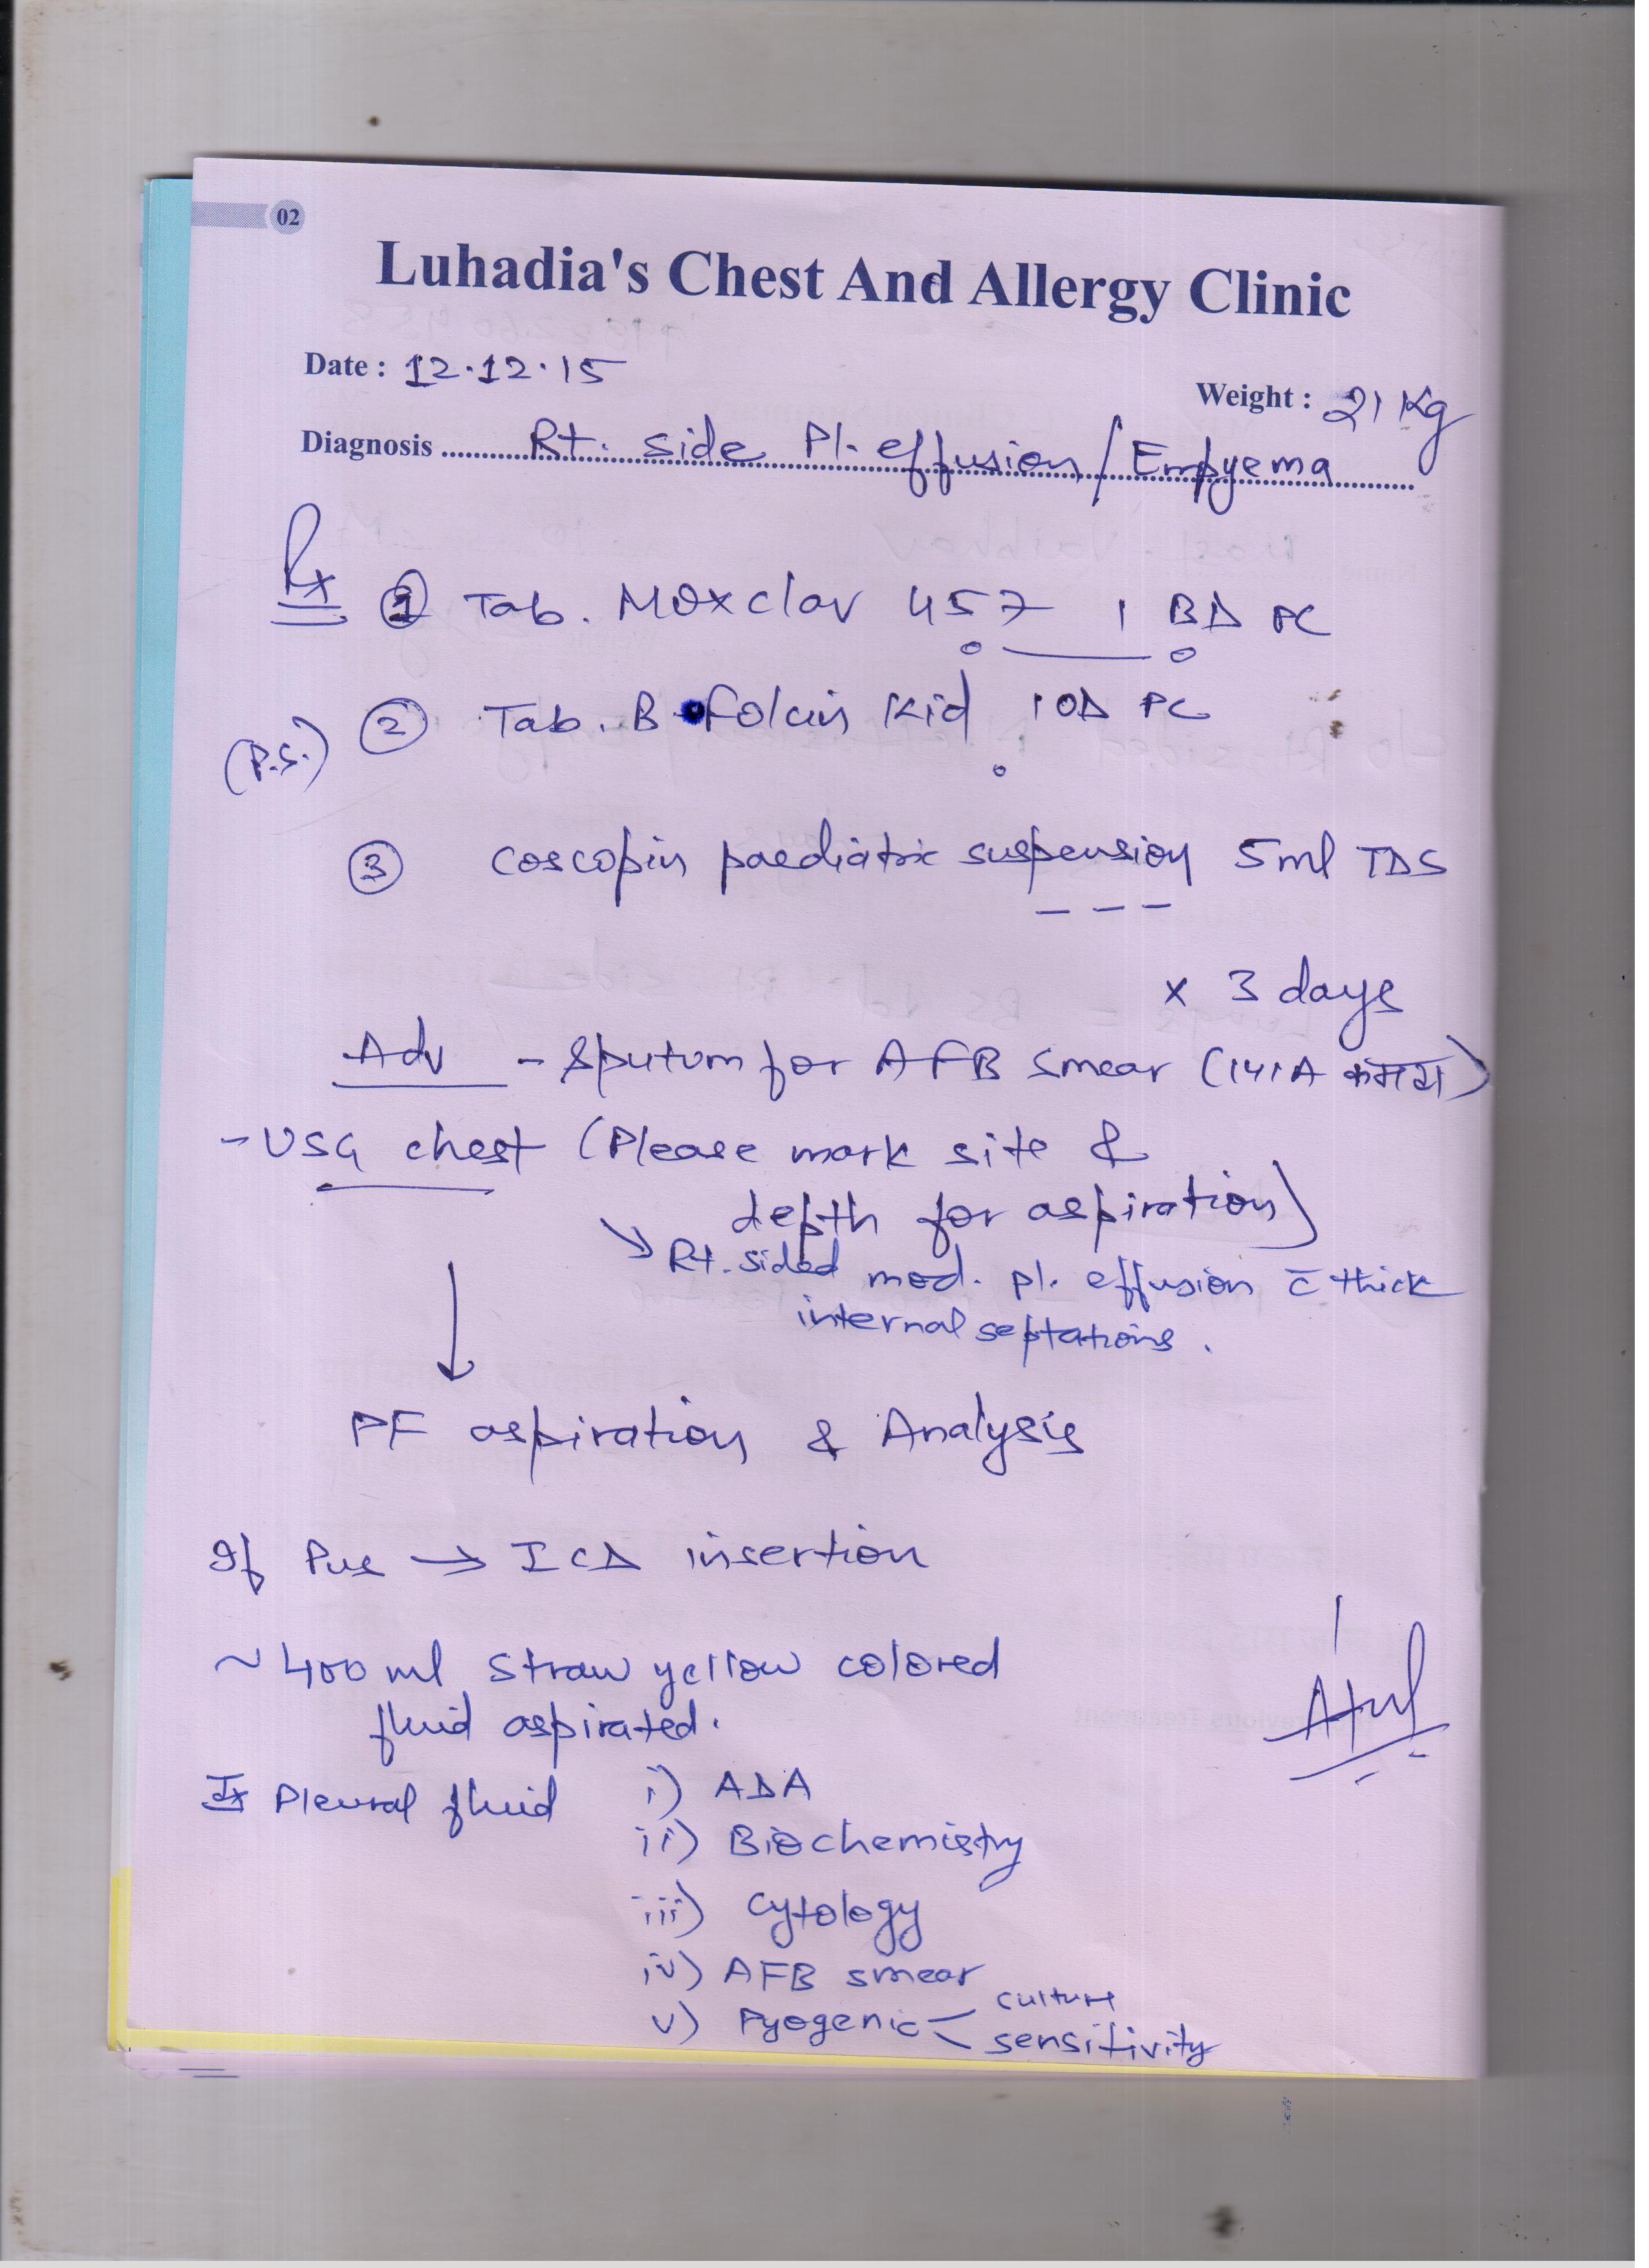 02
Luhadia's Chest And Allergy Clinic
Date : 12.12.15
Weight : 21 Kg
Diagnosis Rt. side Pl. effusion / Empyema
Rx ① Tab. Moxclav 457 1 BD PC
(P.S.) ② Tab. B folcin Kid 1OD PC
③ coscopin paediatric suspension 5ml TDS
x 3 days
Adv - Sputum for AFB smear (141A कमरा)
- USG chest (Please mark site &
depth for aspiration)
Rt. sided mod. pl. effusion c̄ thick
internal septations.
PF aspiration & Analysis
If Pus → ICD insertion
~ 400 ml straw yellow colored
fluid aspirated.
Atul
Ix Pleural fluid i) ADA
ii) Biochemistry
iii) Cytology
iv) AFB smear
v) Pyogenic culture
sensitivity